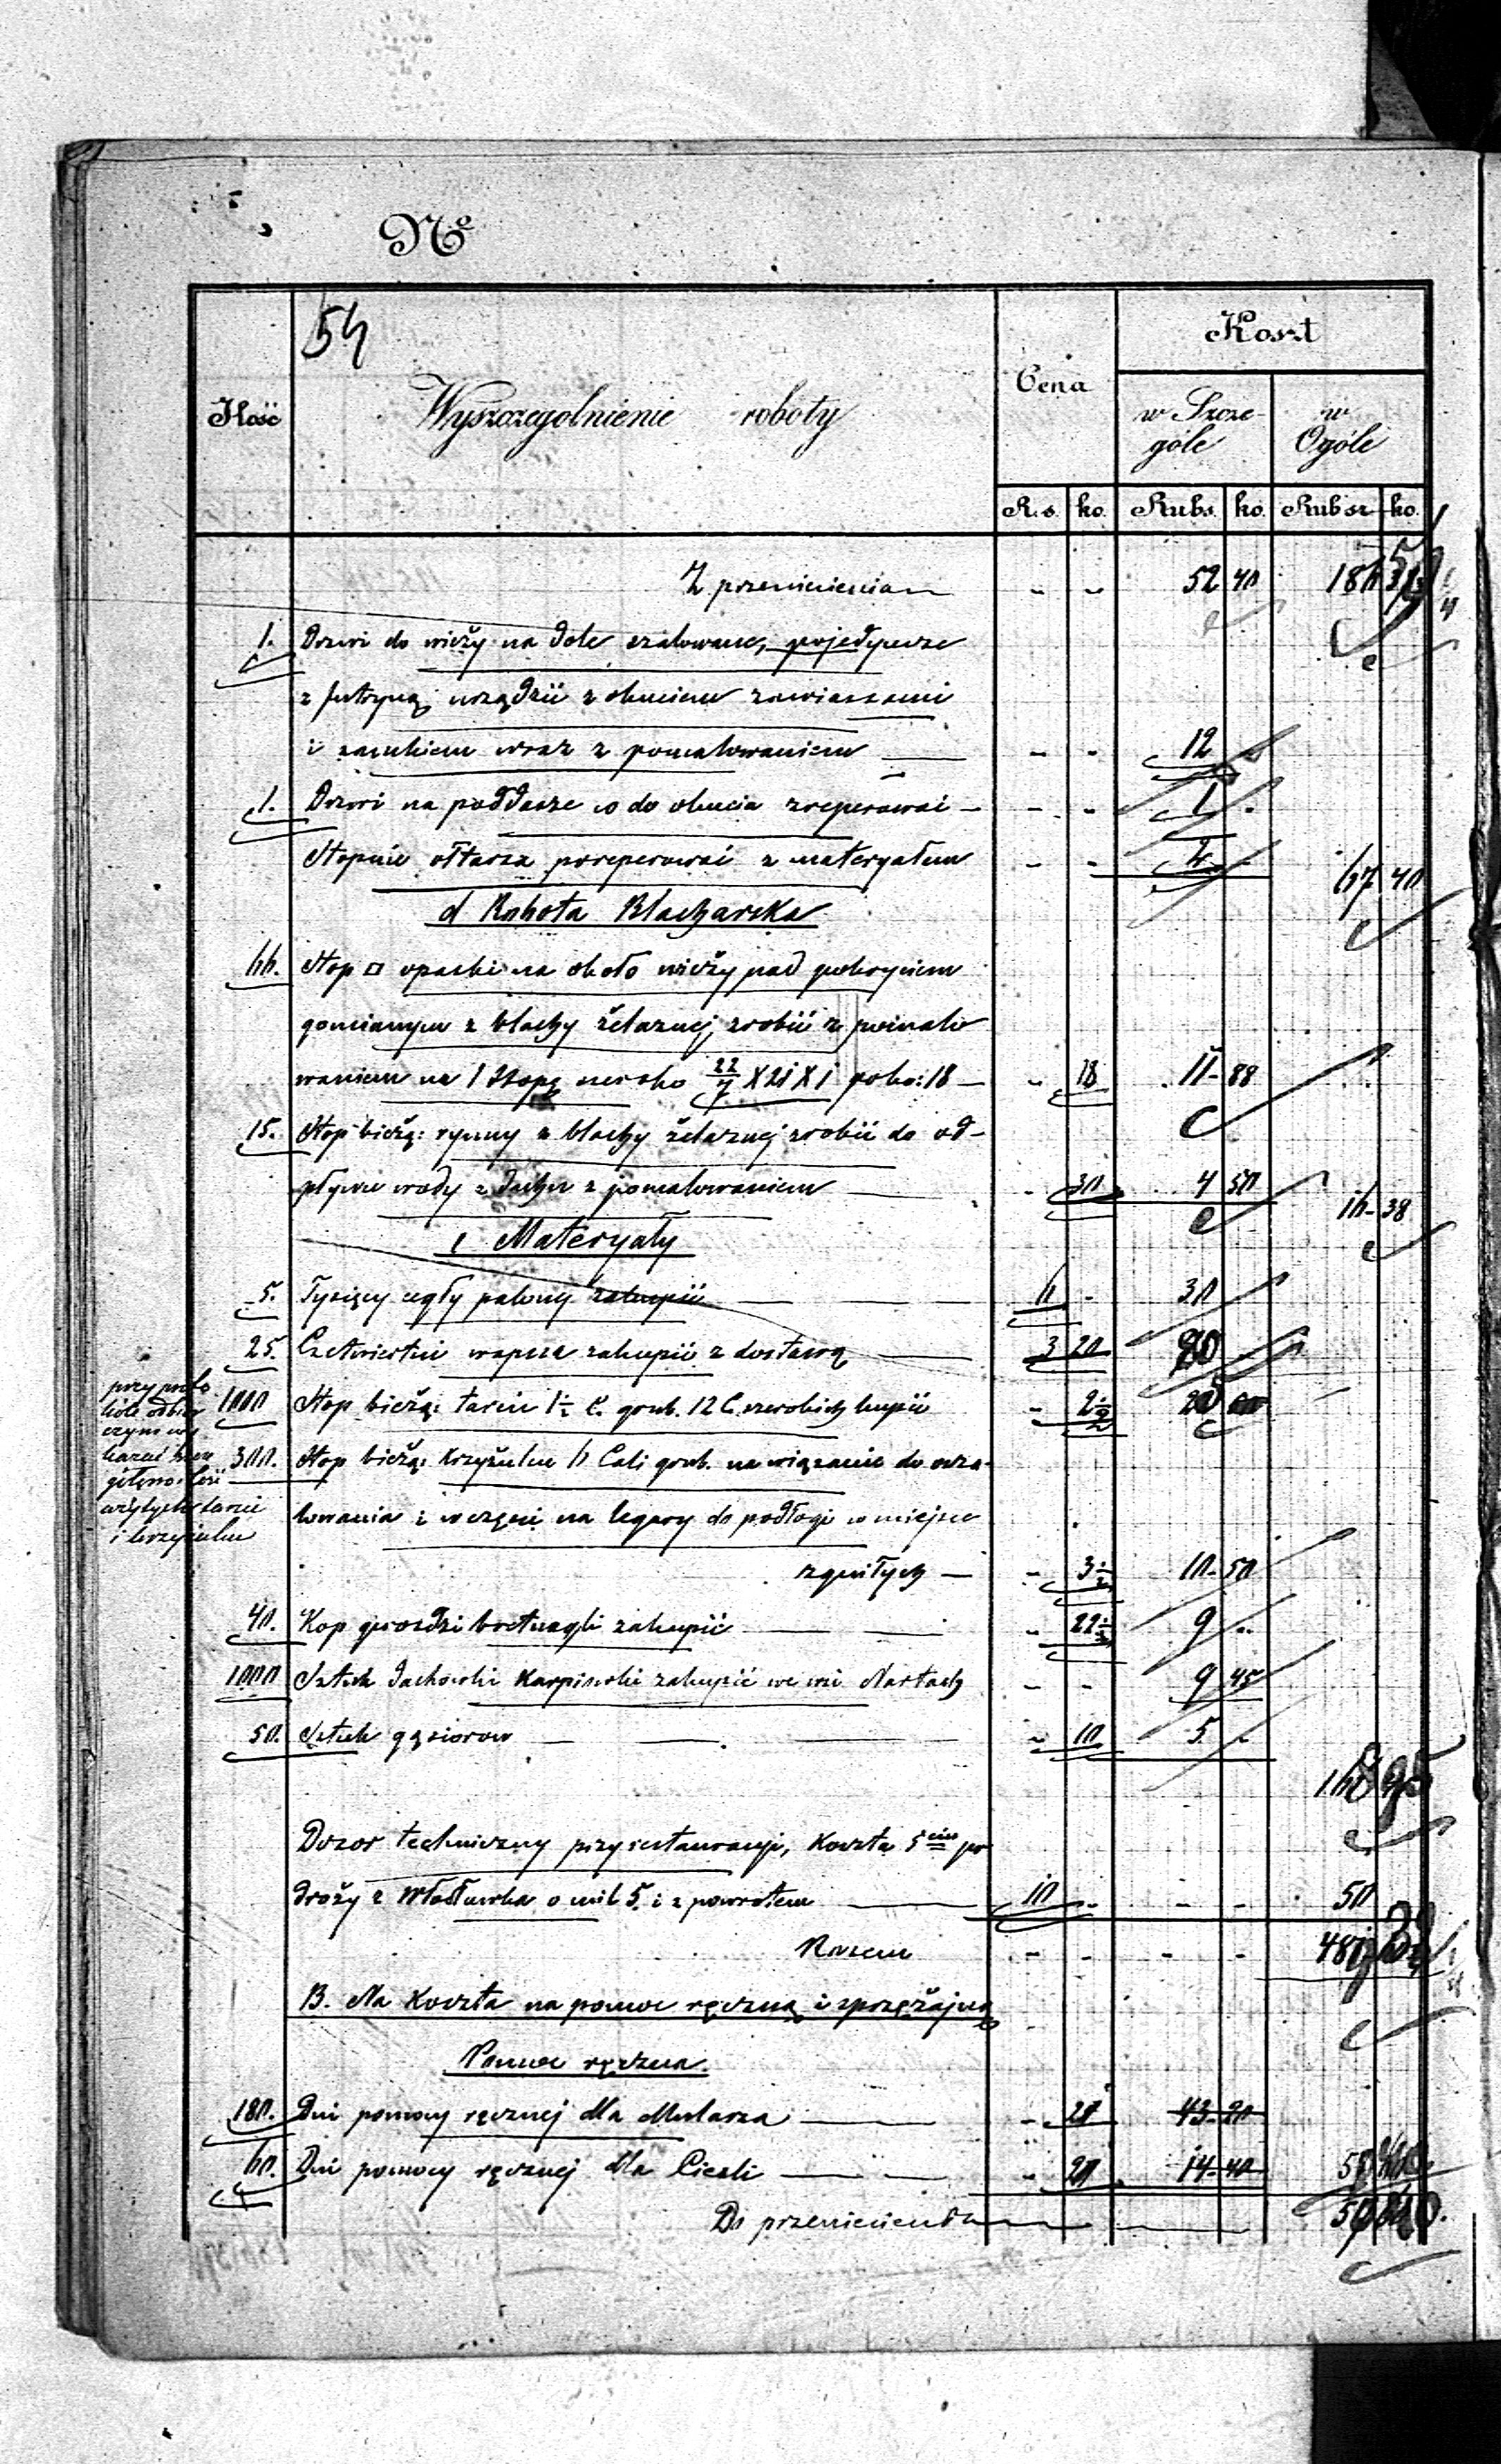 №
54
Ilość
Wyszczegolnienie roboty
Cena
Koszt
w Szcze-
góle
w
Ogóle
R.s. ko. Rubs. ko. Rubsr ko.
Z przeniesienia " " 52 40
1. Drzwi do wieży na dole szalowane, pojedyncze
z futryną urządzić z okuciem zawiassami
i zamkiem wraz z pomalowaniem - - 12
1. Drzwi na poddasze co do okucia zreperować - - - 1 -
Stopnie ołtarza poreperować z materyałem - - 67 40
d Robota Blacharska
66. Stop □ opaski na około wieży nad pokryciem
goncianym z blachy żelaznej zrobić z
waniem na 1 Stopę szeroko 22/7 X 21 X 1 po ko: 18 - - 18 11 - 88
15. Stop bieżą: rynny z blachy żelaznej zrobić do od-
pływu wody z dachu z pomalowaniem - 30 4 50 16 - 38
e Materyały
5. Tysięcy cegły palonej zakupić 6 - 30
25. Czetwiertni wapna zakupić z dostawą 3 20 80
1000 Stop bieżą: tarcic 1½ C. grub. 12 C. szerokich kupić - 2½
300. Stop bieżą: Krzyżulcu 6 Cali grub. na wiązanie do osza-
lowania i w części na legary do podłogi w miejsce
zgniłych - - 3½ 10 - 50
przy proto
kóle odbior
czym
i krzyżulcu
40. Kop gwoździ bretnagli zakupić - 22½ 9 "
1000 Sztuk dachówki Karpiówki zakupić we wsi Nartach - - 9 45
50. Sztuk gąsiorow - 10 5 -
Dozor techniczny przy restauracyi, Koszta 5ciu po
droży z Włocławka o mil 5. i z powrotem 10 - - - 50
Razem - - - -
B. Na Koszta na pomoc ręczną i sprzężajną
Pomoc ręczna.
180. Dni pomocy ręcznej dla Mularza - 43 - 20
60. Dni pomocy ręcznej dla Cieśli - 14 - 40
Do przeniesienia